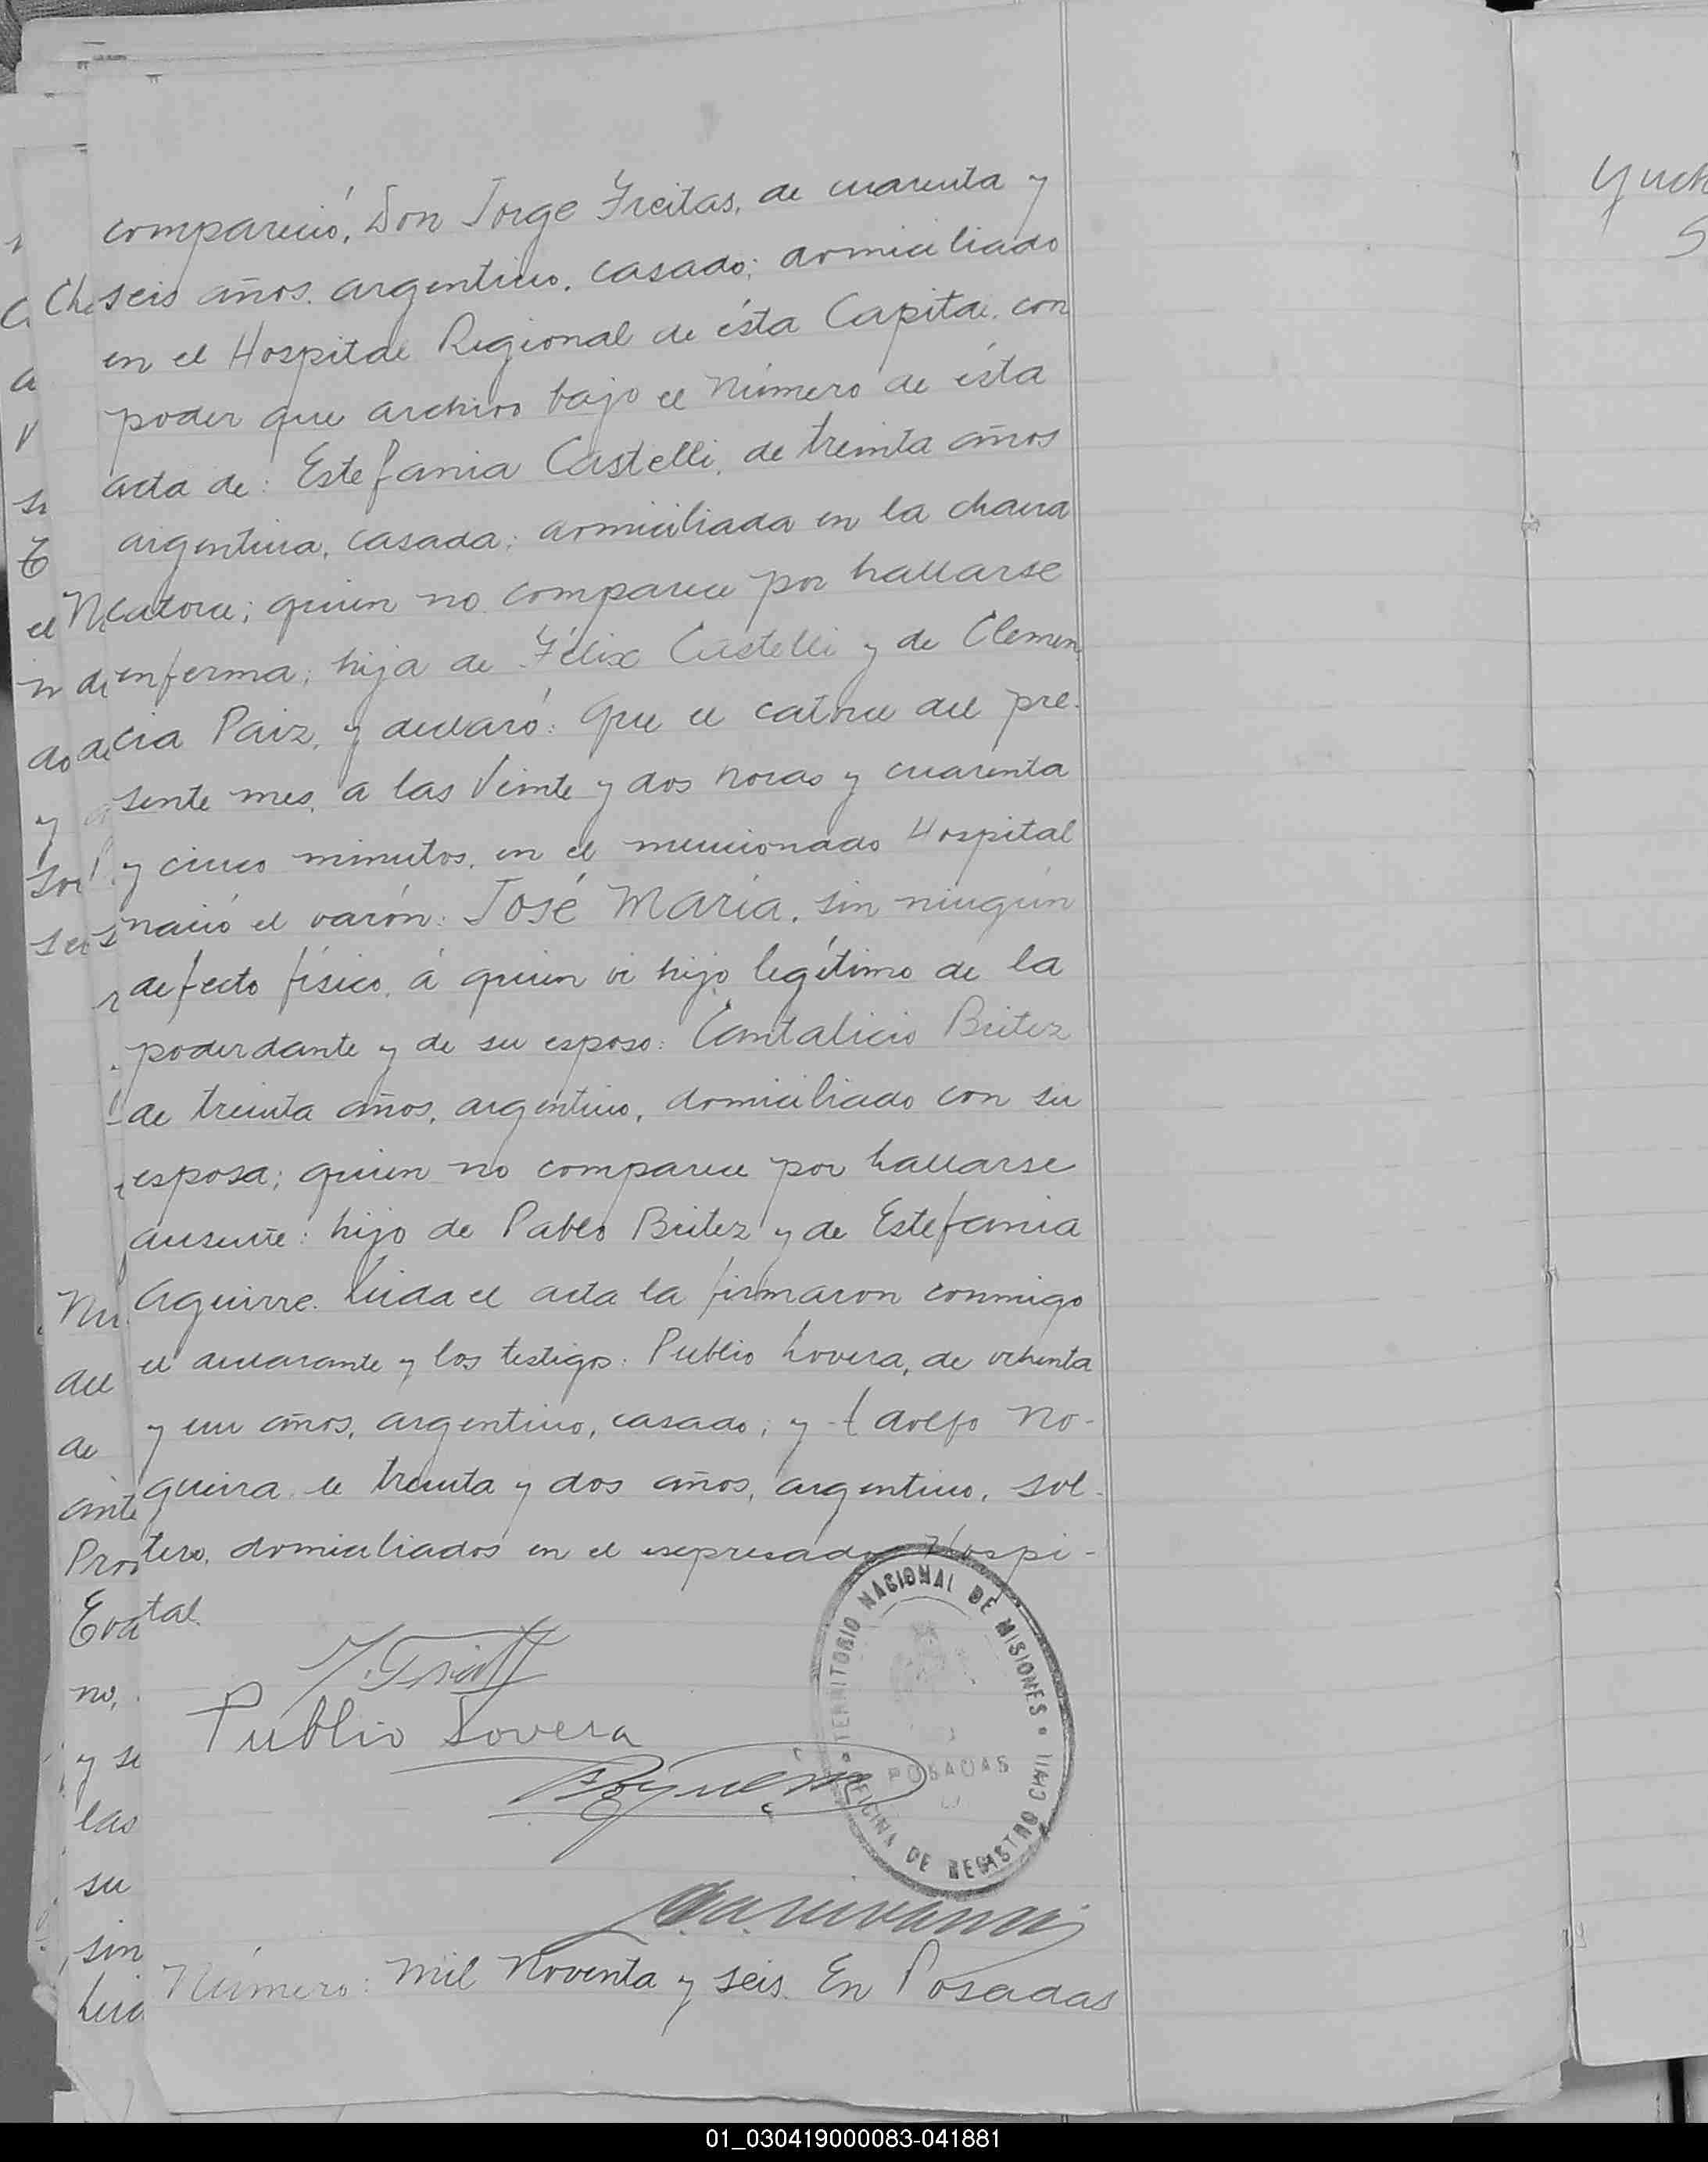 compareció, Don Jorge Freitas, de cuarenta y
seis años, argentino, casado; domiciliado
en el Hospital Regional de ésta Capital, con
poder que archivo bajo el Número de ésta
acta de: Estefania Castelli, de treinta años
argentina, casada; domiciliada en la chacra
catorce; quien no comparece por hallarse
enferma; hija de Félix Castelli y de Clemen
cia Paiz, y declaró: Que el catorce del pre-
sente mes, a las Veinte y dos horas y cuarenta
y cinco minutos, en el mencionado Hospital
nació el varón: José María, sin ningún
defecto físico, á quien vi hijo legítimo de la
poderdante y de su esposo: Cantalicio Britez
de treinta años, argentino, domiciliado con su
esposa; quien no comparece por hallarse
ausente: hijo de Pablo Britez y de Estefania
Aguirre. Leida el acta la firmaron conmigo
el declarante y los testigos: Publio Lovera, de ochenta
y un años, argentino, casado; y Adolfo No-
gueira de treinta y dos años, argentino, sol-
tero, domiciliados en el expresado Hospi-
tal.
Publio Lovera
TERRITORIO NACIONAL DE MISIONES
POSADAS
OFICINA DE REGISTRO CIVIL
Número: Mil Noventa y seis. En Posadas
01_030419000083-041881